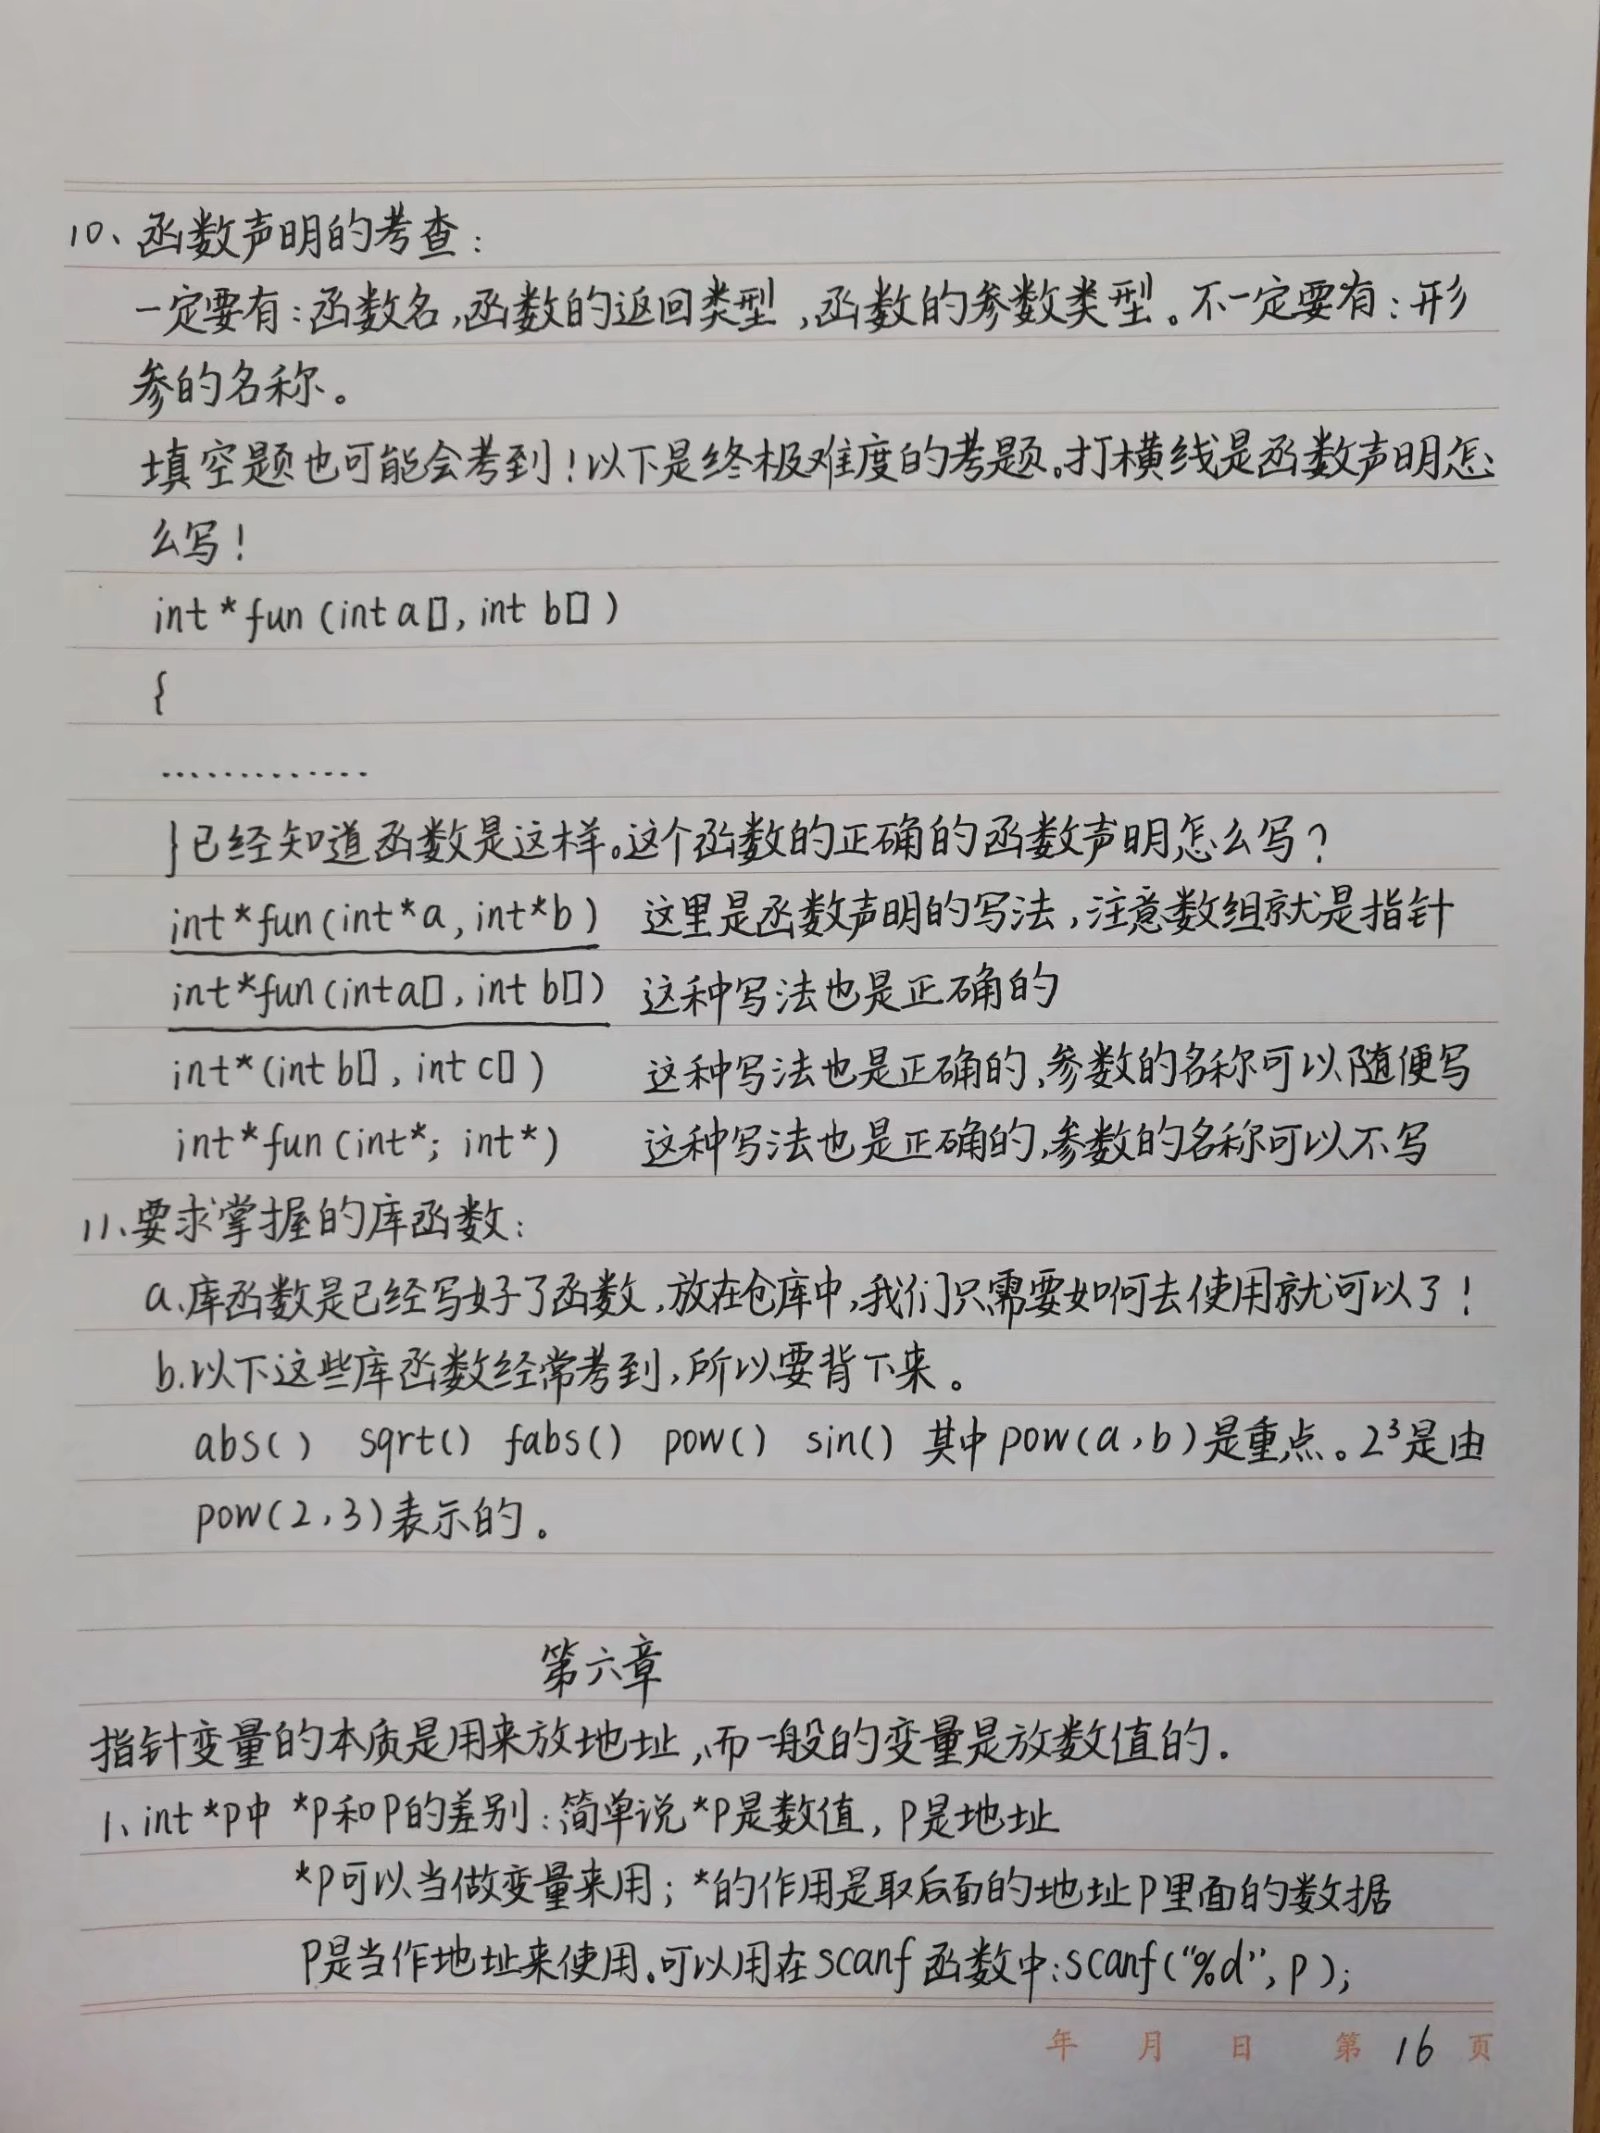 10、函数声明的考查：
一定要有：函数名，函数的返回类型，函数的参数类型。不一定要有：形
参的名称。
填空题也可能会考到！以下是终极难度的考题。打横线是函数声明怎
么写！
int *fun (int a[], int b[])
{
.............
}已经知道函数是这样。这个函数的正确的函数声明怎么写？
int*fun(int*a, int*b) 这里是函数声明的写法，注意数组就是指针
int*fun(int a[], int b[]) 这种写法也是正确的
int*(int b[], int c[]) 这种写法也是正确的，参数的名称可以随便写
int*fun(int*; int*) 这种写法也是正确的，参数的名称可以不写
11、要求掌握的库函数：
a、库函数是已经写好了函数，放在仓库中，我们只需要如何去使用就可以了！
b.以下这些库函数经常考到，所以要背下来。
abs() sqrt() fabs() pow() sin() 其中pow(a,b)是重点。2³是由
pow(2,3)表示的。
第六章
指针变量的本质是用来放地址，而一般的变量是放数值的.
1、int *p中 *p和p的差别：简单说*p是数值，p是地址
*p可以当做变量来用；*的作用是取后面的地址p里面的数据
p是当作地址来使用。可以用在scanf函数中：scanf("%d", p);
年 月 日 第 16 页